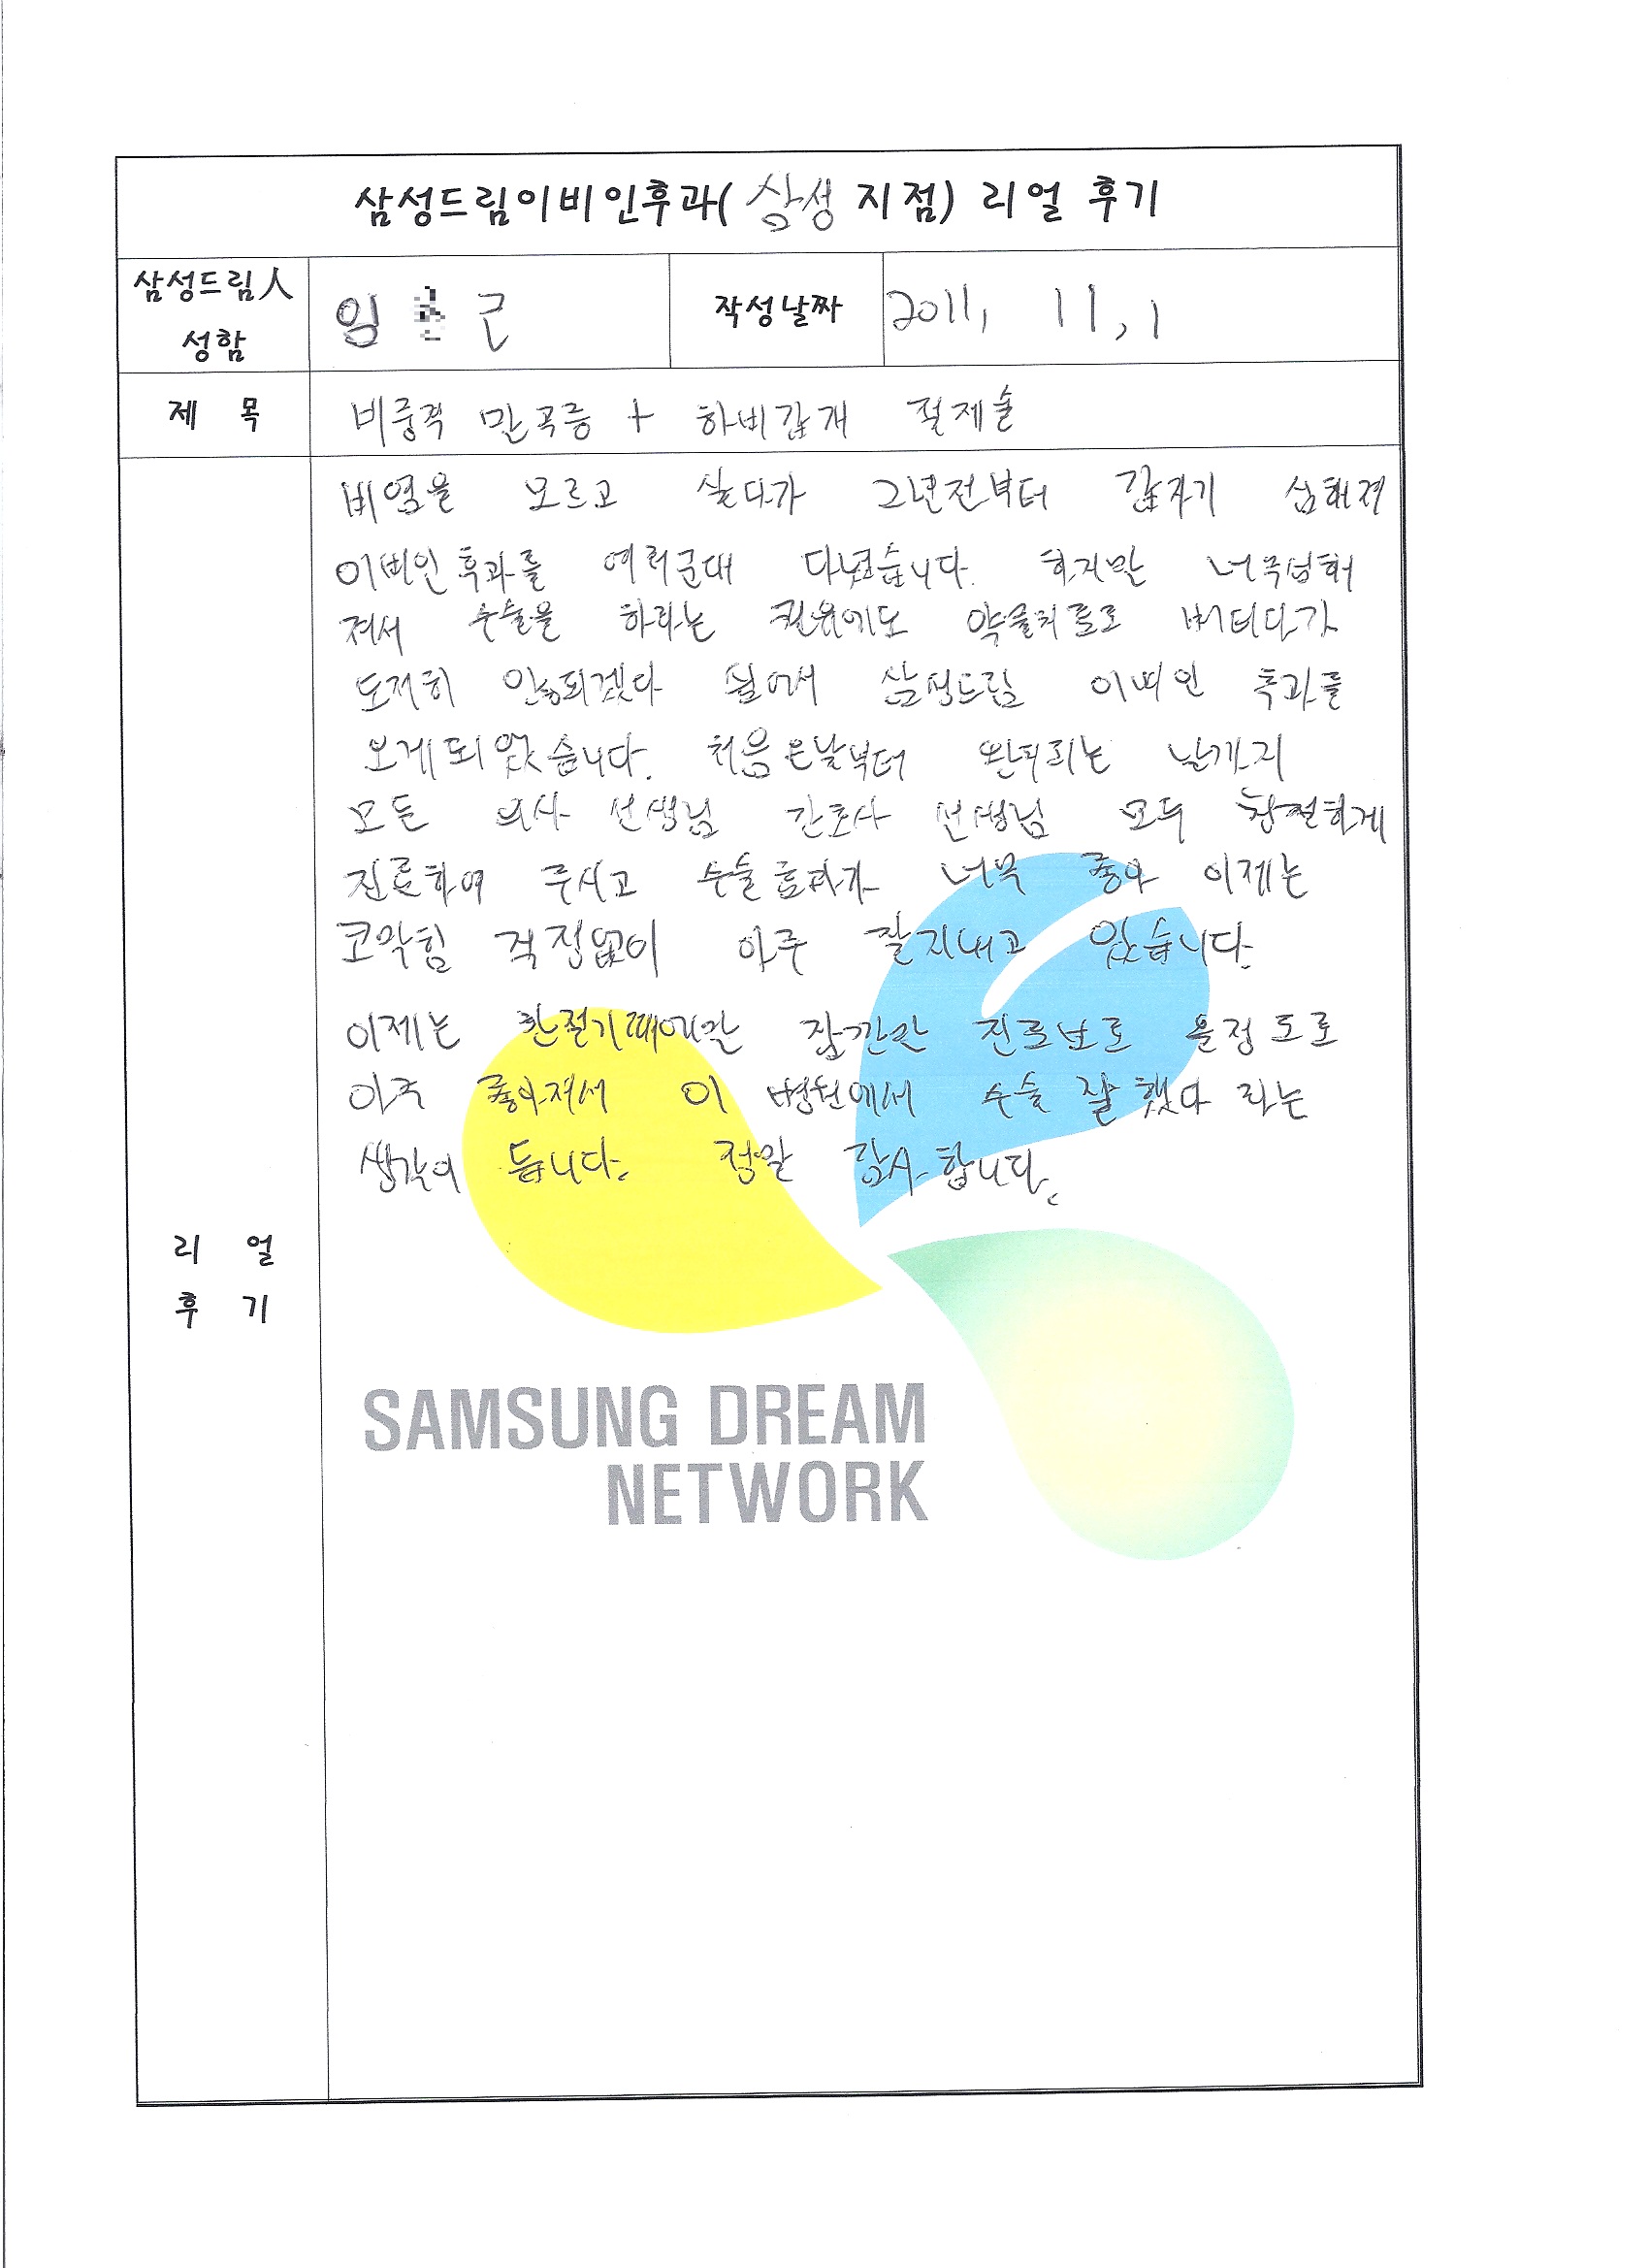 삼성드림이비인후과( 삼성 지점) 리얼 후기
삼성드림人 성함
임 근
작성날짜
2011, 11, 1
제 목
비중격 만곡증 + 하비갑개 절제술
비염을 모르고 살다가 2년전부터 갑자기 심해져
이비인후과를 여러군대 다녔습니다. 하지만 너무심해
져서 수술을 하라는 권유에도 약물치료로 버티다가
도저히 안되겠다 싶어서 삼성드림 이비인 후과를
오게되었습니다. 처음온날부터 완치되는 날까지
모든 의사 선생님 간호사 선생님 모두 친절하게
진료하여 주시고 수술효과가 너무 좋아 이제는
코막힘 걱정없이 아주 잘지내고 있습니다.
이제는 환절기때에만 잠깐만 진료보로 올정도로
아주 좋아져서 이 병원에서 수술 잘했다 라는
생각이 듭니다. 정말 감사합니다.
리 얼
후 기
SAMSUNG DREAM
NETWORK